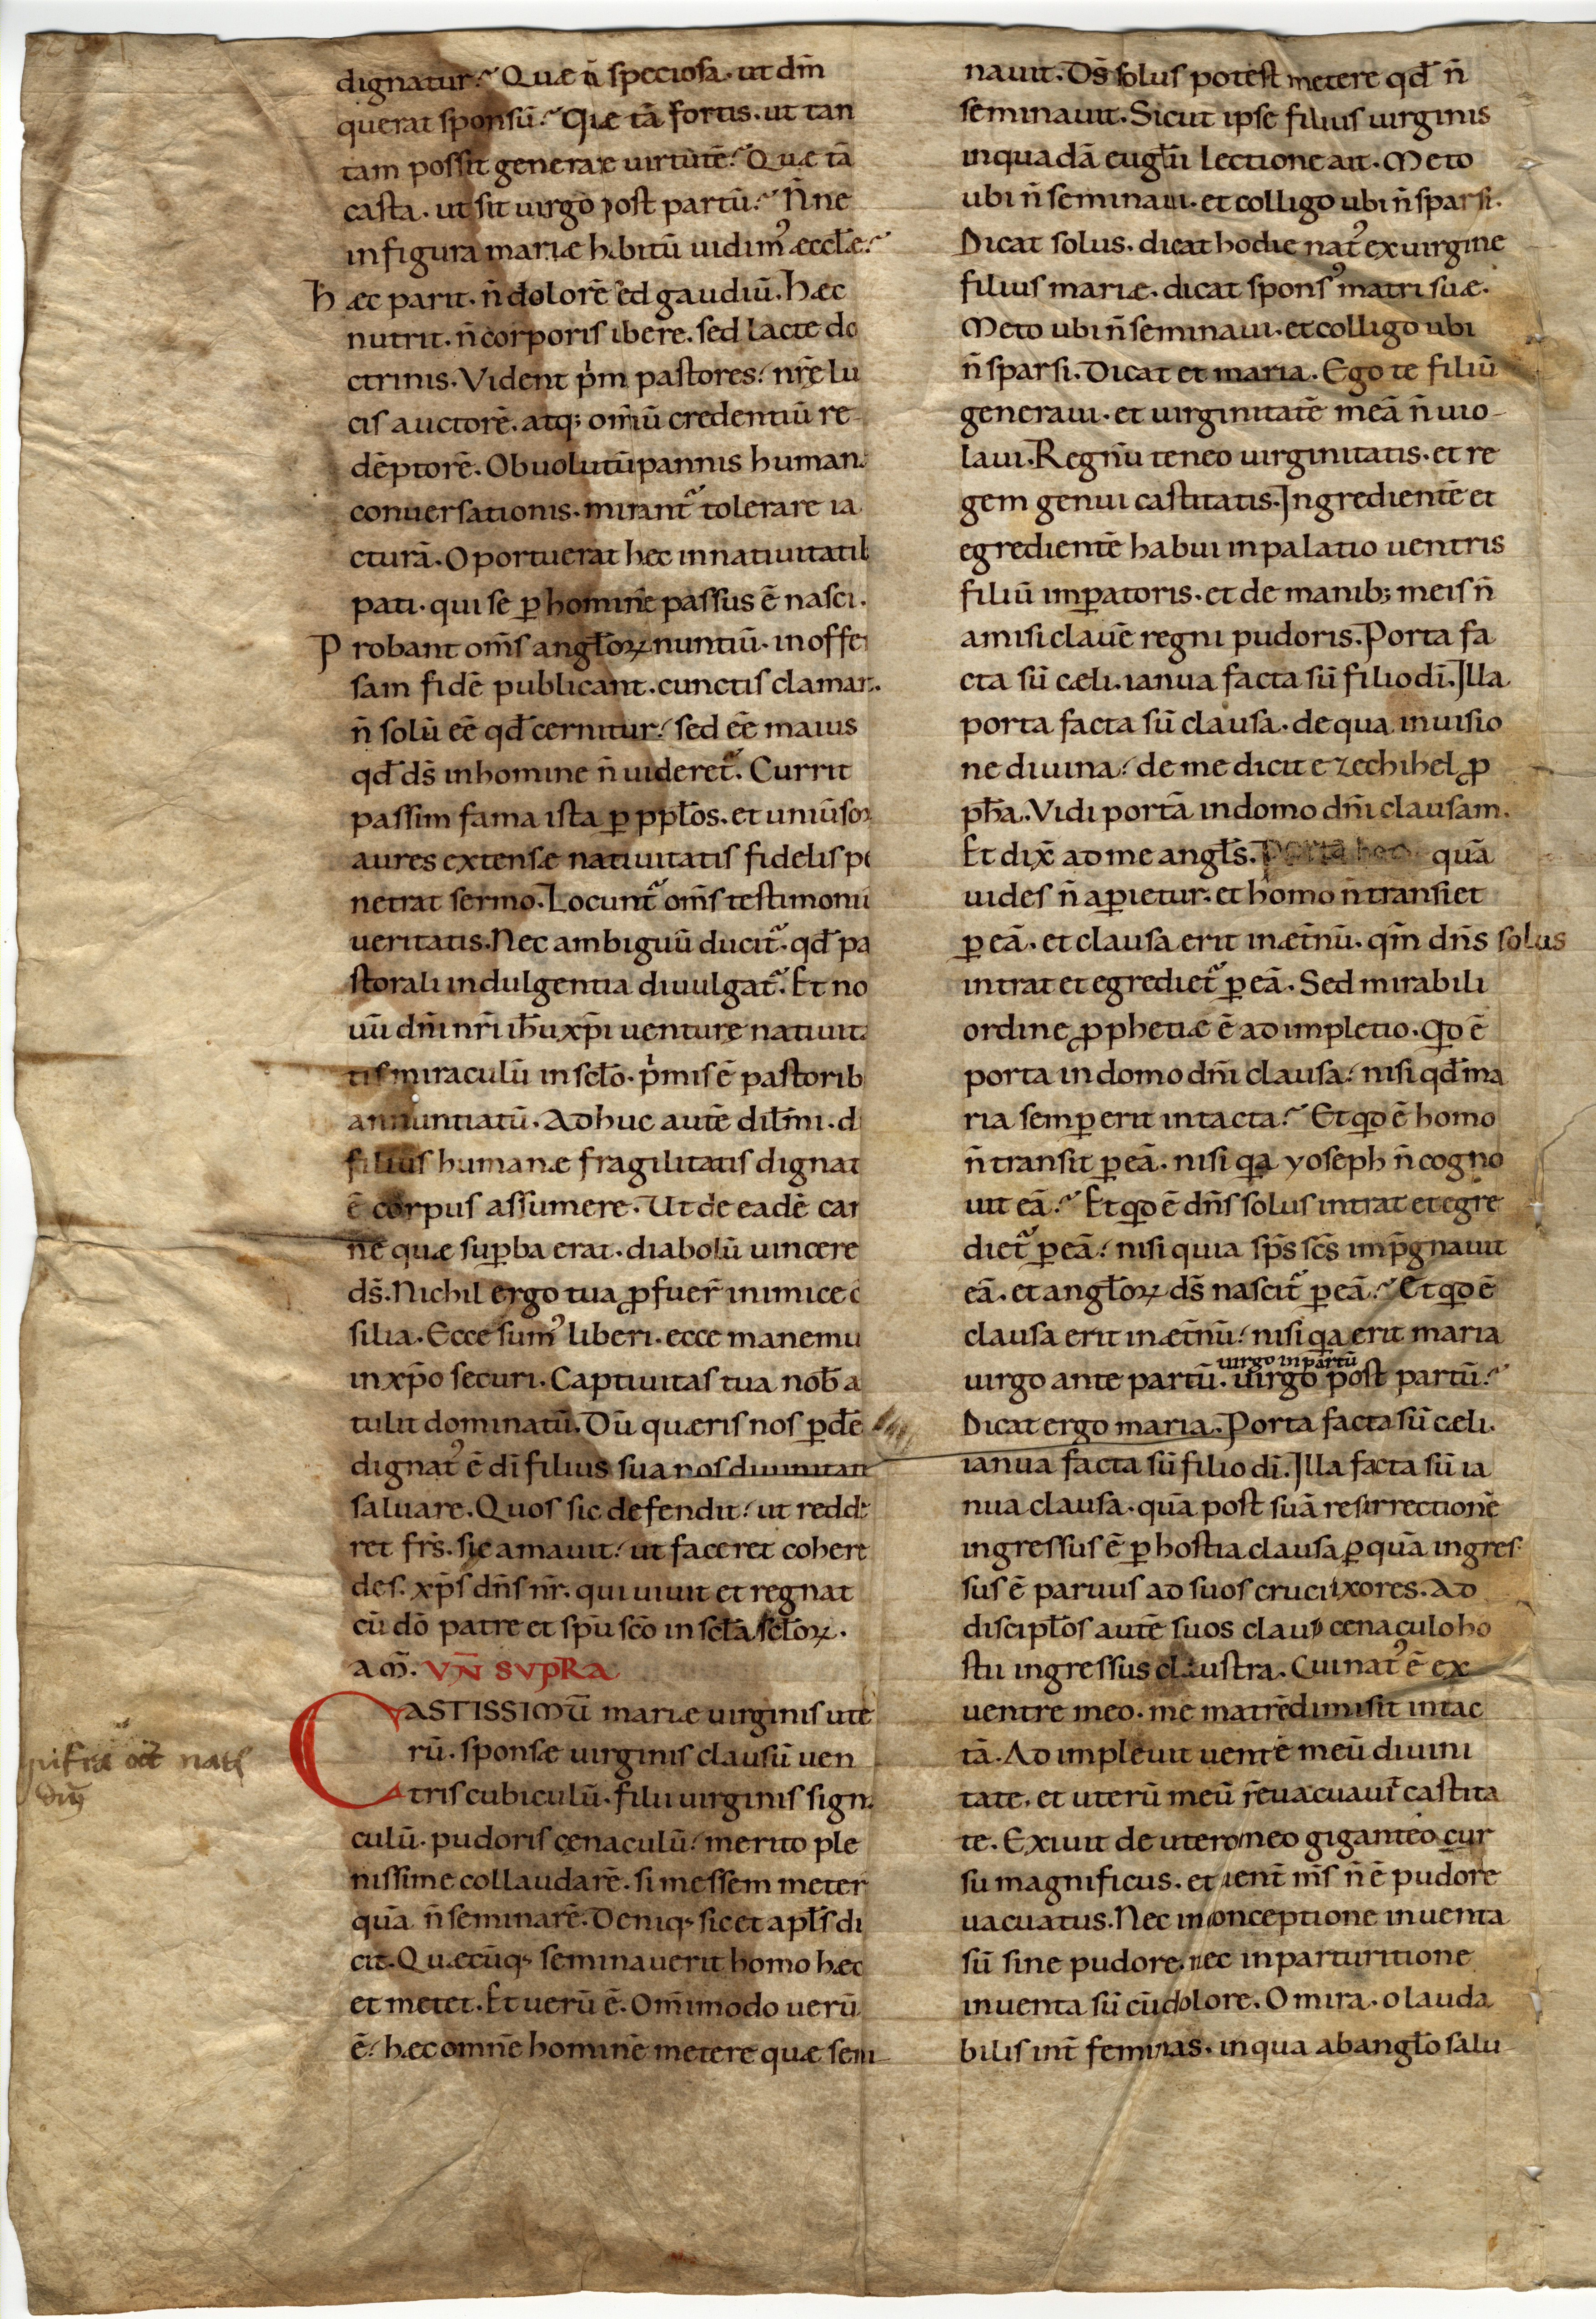 dignatur? Quæ tā speciosa. ut dm̄
querat sponsū? Quæ tā fortis. ut tan
tam possit generare uirtutē? Quæ tā
casta. ut sit uirgo post partū? N̄ne
in figura mariæ habitū uidim᾿ æccl̄æ?
Hæc parit. n̄ dolorē sed gaudiū. Hæc
nutrit. n̄ corporis ubere. sed lacte do
ctrinis. Vident p̓m pastores nr̄ę lu
cis auctorē. atq; om̄iū credentiū re
dēptorē. Obuolutū pannis human
conuersationis. mirant᷒ tolerare ia
cturā. Oportuerat hęc in natiuitatib
pati. qui se p̱ hominē passus ē nasci.
Probant om̄s angl̄oꝝ nuntiū. inoffe
sam fidē publicant. cunctis clamant.
n̄ solū eē qđ cernitur. sed eē maius
qđ ds̄ in homine n̄ uideret᷒. Currit
passim fama ista p̱ ppl̄os. et uniūsoꝝ
aures extensæ natiuitatis fidelis pe
netrat sermo. Locunt᷒ om̄s testimoniū
ueritatis. Nec ambiguū ducit᷒. qđ pa
storali indulgentia diuulgat᷒. Et no
uū dn̄i nr̄i ih̄u xp̄i uenturę natiuita
tis miraculū in scl̄o. p̓mis ē pastorib
annuntiatū. Adhuc autē dil̄mi. d
filius humanæ fragilitatis dignat
ē corpus assumere. Ut de eadē car
ne quæ sup̱ba erat. diabolū uincere
ds̄. Nichil ergo tua ꝓfuer̄ inimice c
silia. Ecce sum᾿ liberi. ecce manemu
in xp̄o securi. Captiuitas tua nob̄ a
tulit dominatū. Dū quæris nos p̱dē
dignat᾿ ē dī filius sua nos diuinitate
saluare. Quos sic defendit. ut redde
ret frs̄. sic amauit. ut faceret cohere
des. xp̄s dn̄s nr̄. qui uiuit et regnat
cū dō patre et sp̄u scō in scl̄a scl̄oꝝ.
am̄. VN̄ SVPRA
CASTISSIMŪ mariæ uirginis ute
rū. sponsæ uirginis clausū uen
tris cubiculū. filii uirginis signa
culū. pudoris cęnaculū. merito ple
nissime collaudarē. si messem meter
quā n̄ seminarē. Deniq; sic et apl̄s di
cit. Quæcūq; seminauerit homo hæc
et metet. Et uerū ē. Om̄imodo uerū
ē. hæc omnē hominē metere quæ semi
nifra oct̄ nat̄
dn̄i
nauit. Ds̄ solus potest metere qđ n̄
seminauit. Sicut ipse filius uirginis
in quadā eugl̄ii lectione ait. Meto
ubi n̄ seminaui. et colligo ubi n̄ sparsi.
Dicat solus. dicat hodie nat᾿ ex uirgine
filius mariæ. dicat spons᾿ matri suæ.
Meto ubi n̄ seminaui. et colligo ubi
n̄ sparsi. Dicat et maria. Ego te filiū
generaui. et uirginitatē meā n̄ uio-
laui. Regnū teneo uirginitatis. et re
gem genui castitatis. Ingredientē et
egredientē habui in palatio uentris
filiū imp̱atoris. et de manib; meis n̄
amisi clauē regni pudoris. Porta fa
cta sū cæli. ianua facta sū filio dī. Illa
porta facta sū clausa. de qua in uisio
ne diuina. de me dicit ezechihel ꝓ
ph̄a. Vidi portā in domo dn̄i clausam.
Et dix̄ ad me angl̄s. Porta hec quā
uides n̄ ap̱ietur. et homo n̄ transiet
p̱ eā. et clausa erit in æt̄nū. qm̄ dn̄s solus
intrat et egrediet᷒ p̱ eā. Sed mirabili
ordine ꝓphetiæ ē adimpletio. Qd ē
porta in domo dn̄i clausa. nisi qđ ma
ria semp̱ erit intacta? Et qd ē homo
n̄ transit p̱ eā. nisi qa yoseph n̄ cogno
uit eā? Et qd ē dn̄s solus intrat et egre
diet᷒ p̱ eā. nisi quia sp̄s scs̄ imp̄gnauit
eā. et angl̄oꝝ ds̄ nascit᷒ p̱ eā? Et qd ē
clausa erit in æt̄nū. nisi qa erit maria
uirgo in partū
uirgo ante partū. uirgo post partū?
Dicat ergo maria. Porta facta sū cæli.
ianua facta sū filio dī. Illa facta sū ia
nua clausa. quā post suā resurrectionē
ingressus ē p̱ hostia clausa p̱ quā ingres-
sus ē paruus ad suos crucifixores. Ad
discipl̄os autē suos clauso cenaculo ho
stii ingressus claustra. Cui nat᾿ ē ex
uentre meo. me matrē dimisit intac
tā. Adimpleuit uentē meū diuini
tate. et uterū meū n̄ euacuauit castita
te. Exiuit de utero meo giganteo cur
su magnificus. et uent̄ ms̄ n̄ ē pudore
uacuatus. Nec in conceptione inuenta
sū sine pudore. nec in parturitione
inuenta sū cū dolore. O mira. o lauda
bilis int̄ feminas. in qua ab angl̄o salu